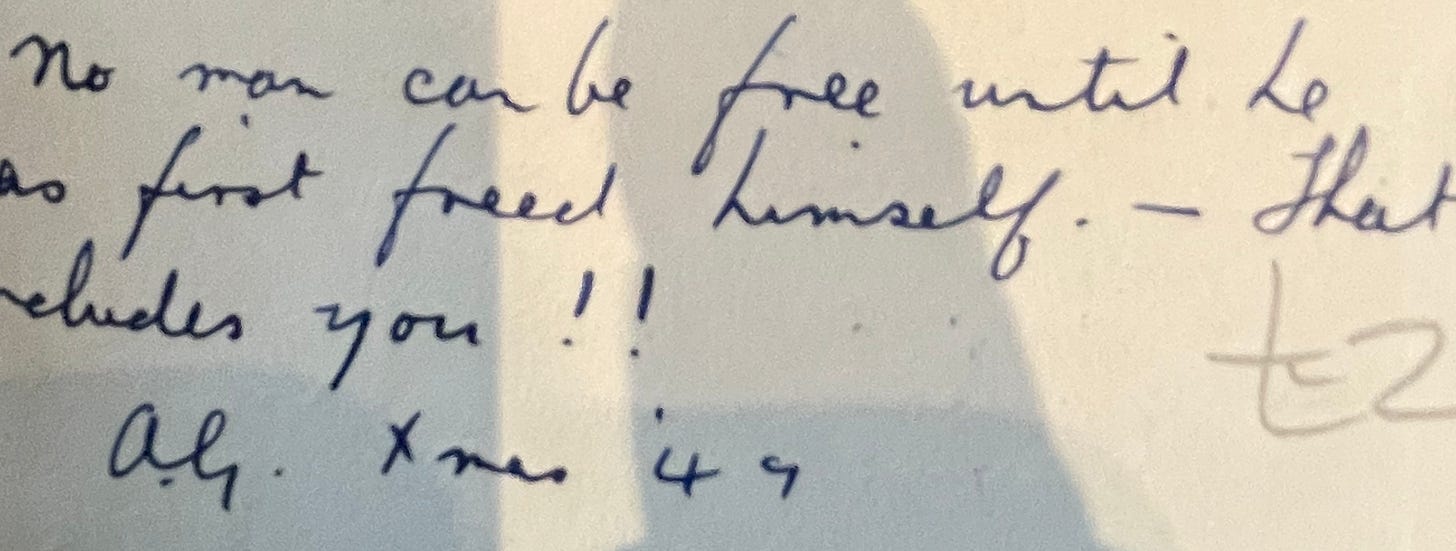 No man can be free until he
as first freed himself. — That
ncludes you !!
A.G. Xmas '49